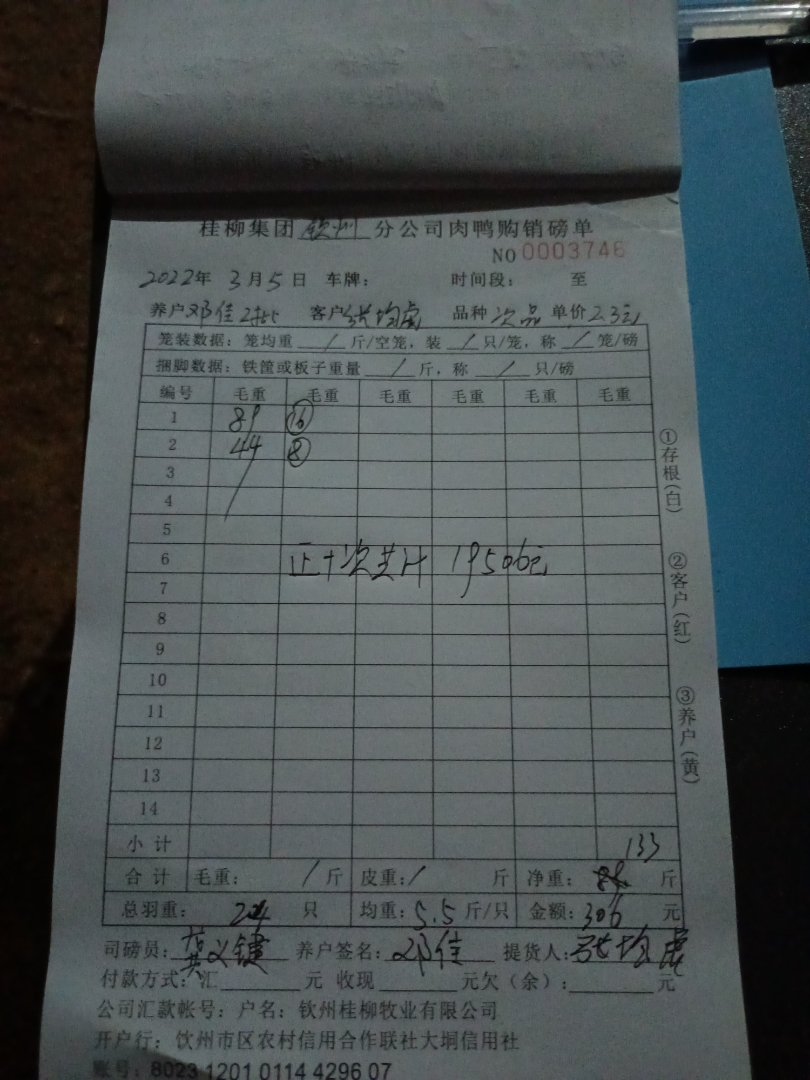 桂柳集团 钦州 分公司肉鸭购销磅单
NO 0003746
2022年 3月5日 车牌: 时间段: 至
养户 邓佳2批 客户 张均彪 品种 次品 单价 2.3元
笼装数据: 笼均重 / 斤/空笼, 装 / 只/笼, 称 / 笼/磅
捆脚数据: 铁筐或板子重量 / 斤, 称 / 只/磅
编号 毛重 毛重 毛重 毛重 毛重 毛重
1 89 ⑯
2 44 ⑧
3
4
5
6 正+次共计 19506元
7
8
9
10
11
12
13
14
小计 133
合计 毛重: / 斤 皮重: / 斤 净重: 斤
总羽重: 24 只 均重: 5.5 斤/只 金额: 306 元
司磅员: 龚义键 养户签名: 邓佳 提货人: 张均彪
付款方式: 汇 元 收现 元欠(余): 元
公司汇款帐号: 户名: 钦州桂柳牧业有限公司
开户行: 钦州市区农村信用合作联社大垌信用社
账号: 8023 1201 0114 4296 07
①存根(白)
②客户(红)
③养户(黄)